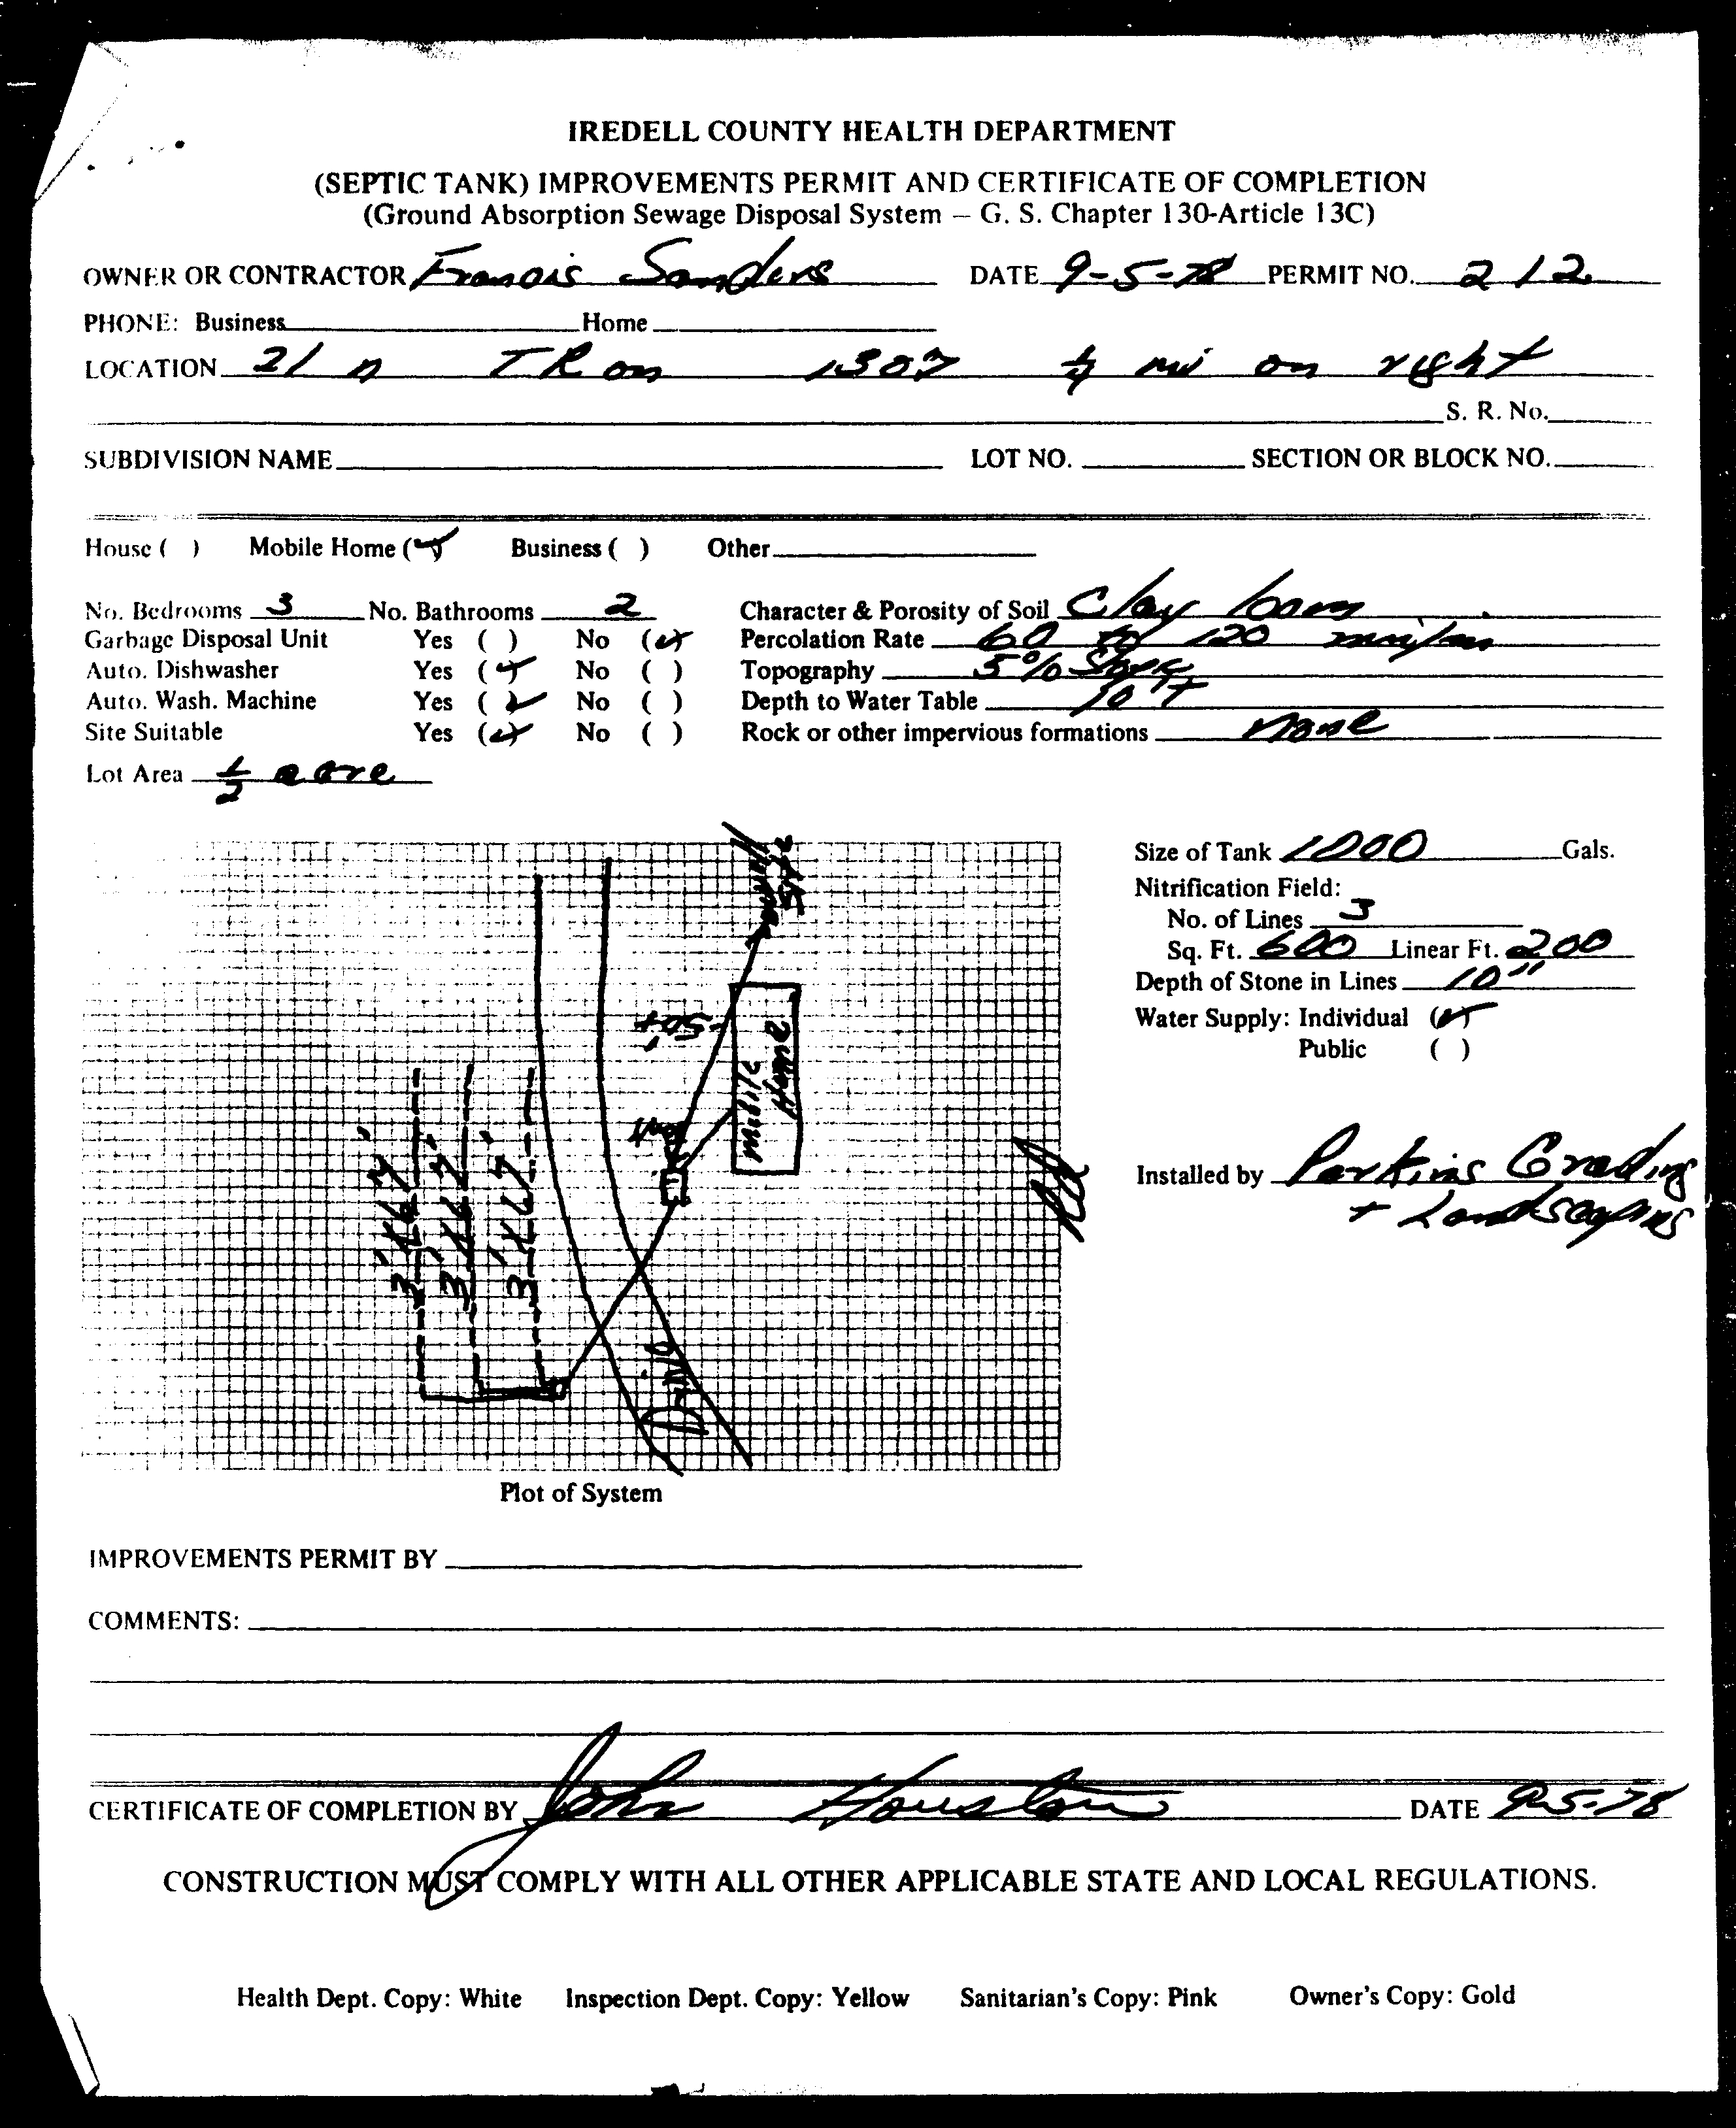 IREDELL COUNTY HEALTH DEPARTMENT
(SEPTIC TANK) IMPROVEMENTS PERMIT AND CERTIFICATE OF COMPLETION
(Ground Absorption Sewage Disposal System – G. S. Chapter 130-Article 13C)
OWNER OR CONTRACTOR Francis Sanders DATE 9-5-78 PERMIT NO. 212
PHONE: Business Home
LOCATION 21 n TR on 1307 mi on right
S. R. No.
SUBDIVISION NAME LOT NO. SECTION OR BLOCK NO.
House ( ) Mobile Home (✓) Business ( ) Other
No. Bedrooms 3 No. Bathrooms 2 Character & Porosity of Soil Clay loam
Garbage Disposal Unit Yes ( ) No (✓) Percolation Rate 60 to 120 min/in
Auto. Dishwasher Yes (✓) No ( ) Topography 5% Slope
Auto. Wash. Machine Yes (✓) No ( ) Depth to Water Table 10'+
Site Suitable Yes (✓) No ( ) Rock or other impervious formations none
Lot Area 1/2 acre
Size of Tank 1000 Gals.
Nitrification Field:
No. of Lines 3
Sq. Ft. 600 Linear Ft. 200
Depth of Stone in Lines 10"
Water Supply: Individual (✓)
Public ( )
Installed by Parkins Grading
+ Landscaping
50+
Mobile
Home
3'X67'
3'X67'
3'X67'
Drive
Plot of System
IMPROVEMENTS PERMIT BY
COMMENTS:
CERTIFICATE OF COMPLETION BY John Houston DATE 9-5-78
CONSTRUCTION MUST COMPLY WITH ALL OTHER APPLICABLE STATE AND LOCAL REGULATIONS.
Health Dept. Copy: White Inspection Dept. Copy: Yellow Sanitarian's Copy: Pink Owner's Copy: Gold